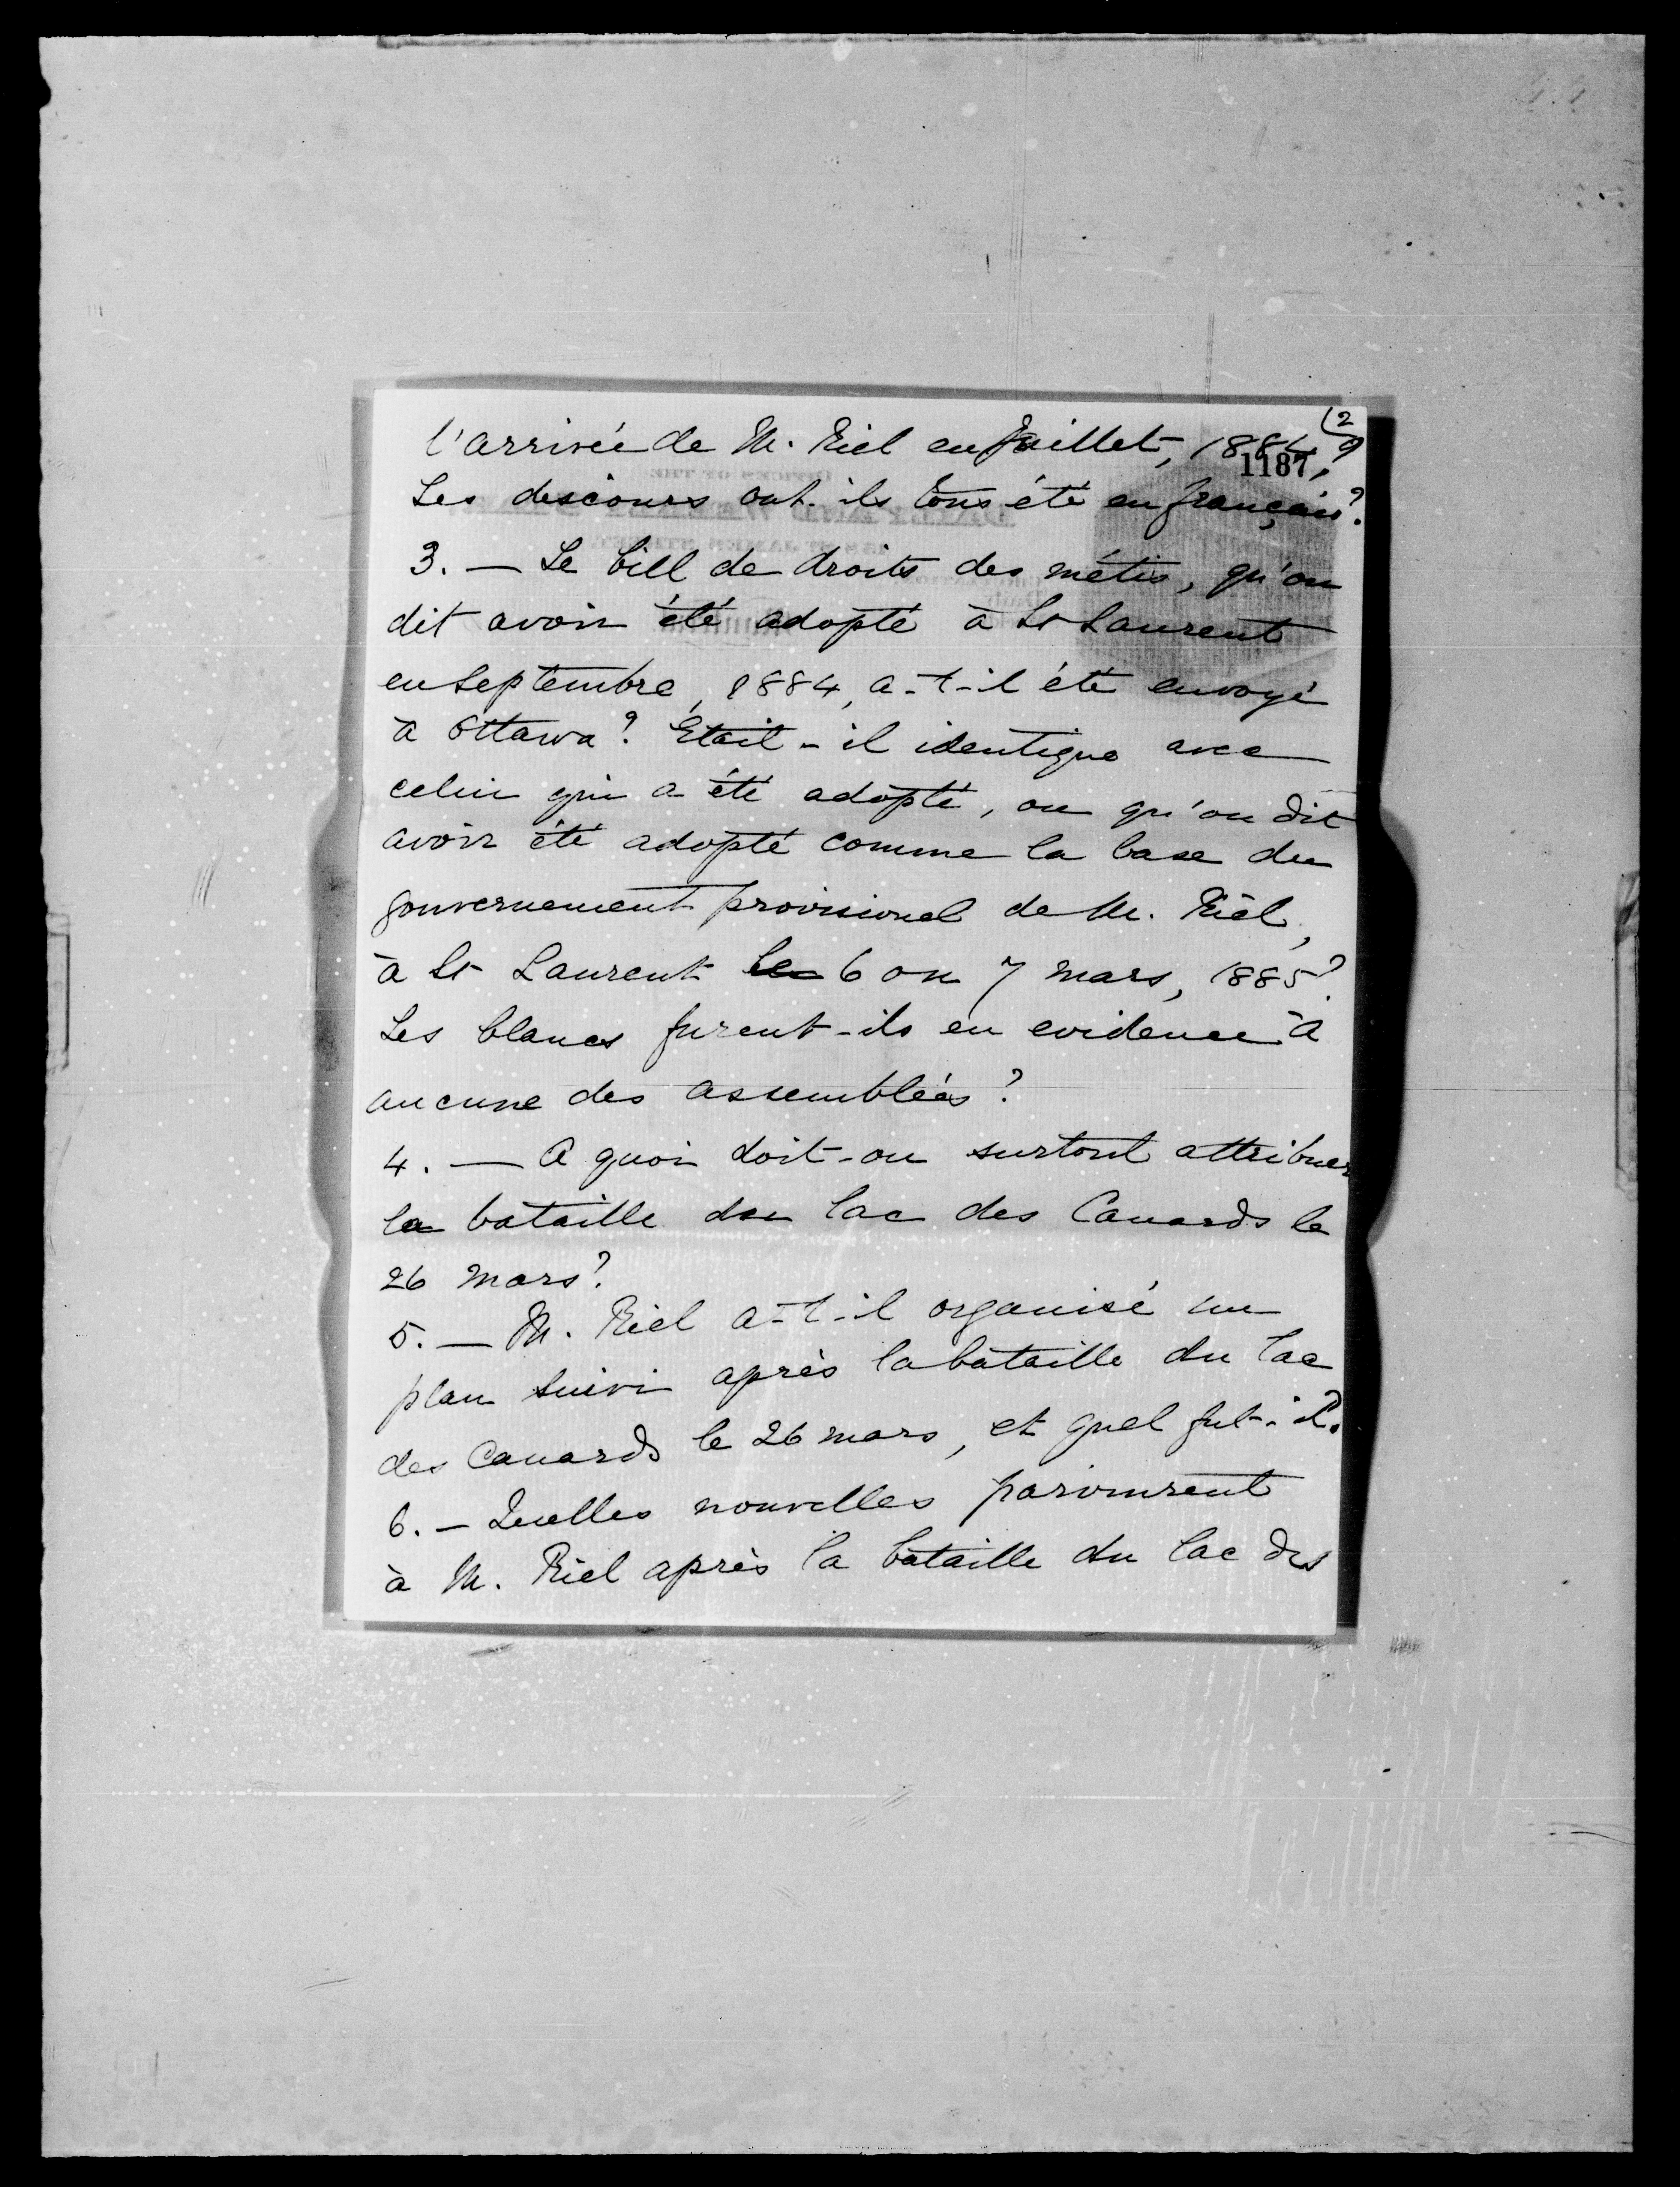 (2
l'arrivée de M. Riel en Juillet, 1884?
1187
Les descours ont-ils tous été en français?
3. — Le bill de droits des métis, qu'on
dit avoir été adopté à St Laurent
en Septembre, 1884, a-t-il été envoyé
à Ottawa? Etait-il identique avec
celui qui a été adopté, ou qu'on dit
avoir été adopté comme la base du
gouvernement provisionel de M. Riel,
à St Laurent le 6 ou 7 mars, 1885?
Les blancs furent-ils en evidence à
aucune des assemblées?
4. — A quoi doit-on surtout attribuer
la bataille du lac des Canards le
26 mars?
5. — M. Riel a-t-il organisé un
plan suivi après la bataille du lac
des Canards le 26 mars, et quel fut-il?
6. — Quelles nouvelles parvinrent
à M. Riel après la bataille du lac des